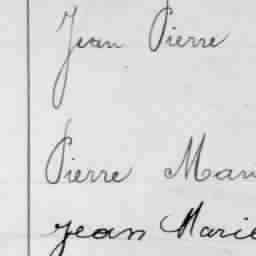 Jean Pierre
Pierre Mari
Jean Marie